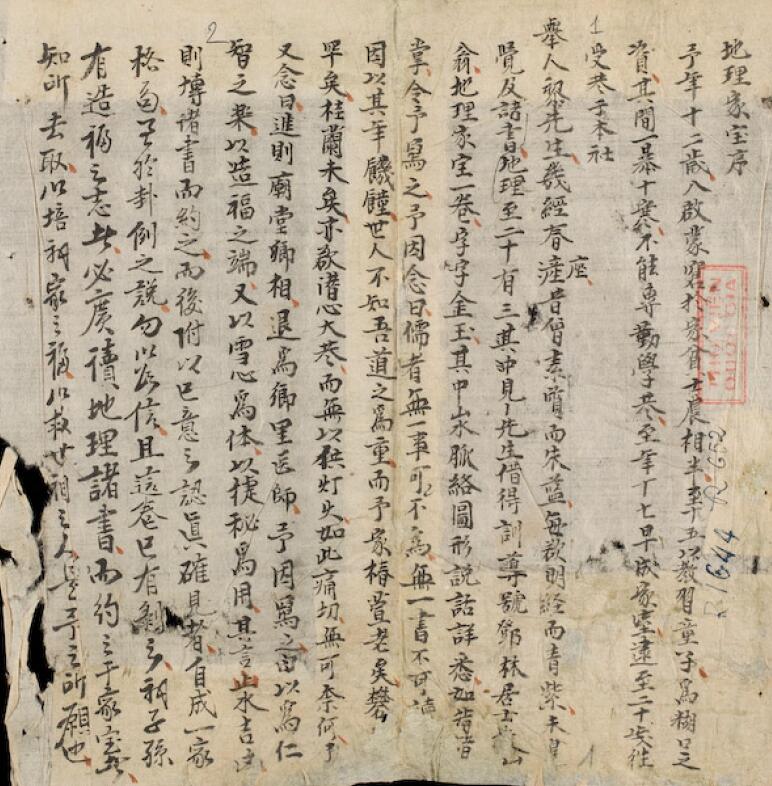 地理家宝序
予年十二歲入啟蒙窘於家貧士農相半至十五以教習童子為糊口之
資其間一暴十寒不能專勤學巷至年十七早成家室遠至二十歲往
受巷于本社
舉人黎先生幾經春座昔曾素質而朱藍每欲明経而青紫未
覺反諸書地理至二十有三其中見先生借得訓導號鄧林居士
翁地理家宝一卷字字金玉其中山水脈絡圖形說話詳悉如指
掌令予寫之予因念曰儒者無一事可不為無一書不可讀
因以其年饑饉世人不知吾道之為重而予家椿萱老矣
罕矣桂蘭未矣亦欲潛心大巷而無以供灯火如此痛切無可奈何予
又念曰進則廟堂卿相退為鄉里医師予因寫之由以為仁
智之樂以造福之端又以雪心為体以捷秘為用其言山水吉凶
則博諸書而約之而後附以己意之認真確見者自成一家
格句至於卦例之說勿以為信且這卷已有剩之祠子孫
有造福之志者必廣讀地理諸書而約之于家宝
知所去取以培祠家之福以救世間之人是予之所願也
2
1
R.1644
R 652